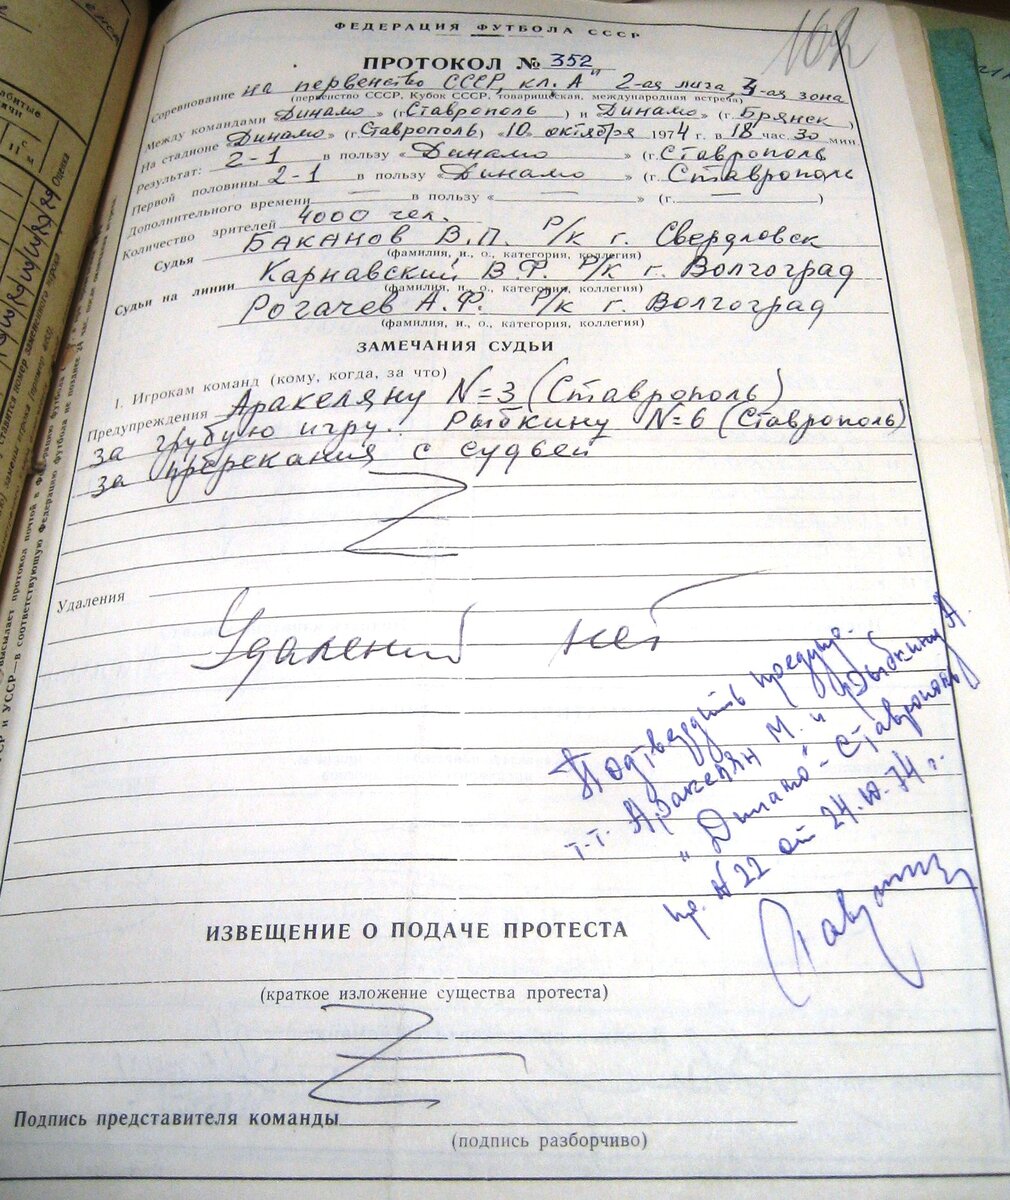 162
ФЕДЕРАЦИЯ ФУТБОЛА СССР
ПРОТОКОЛ № 352
Соревнование на первенство СССР, кл. "А" 2-ая лига, 3-ая зона
(первенство СССР, Кубок СССР, товарищеская, международная встреча)
Между командами „Динамо" (г. Ставрополь) и „Динамо" (г. Брянск)
На стадионе „Динамо" (г. Ставрополь) «10» октября 1974 г. в 18 час. 30 мин.
Результат: 2-1 в пользу «Динамо» (г. Ставрополь
Первой половины 2-1 в пользу «Динамо» (г. Ставрополь
Дополнительного времени — в пользу «—» (г. —)
Количество зрителей 4000 чел.
Судья Баканов В.П. Р/к г. Свердловск
(фамилия, и., о., категория, коллегия)
Судьи на линии Карнавский В.Ф. Р/к г. Волгоград
(фамилия, и., о., категория, коллегия)
Рогачев А.Ф. Р/к г. Волгоград
(фамилия, и., о., категория, коллегия)
ЗАМЕЧАНИЯ СУДЬИ
1. Игрокам команд (кому, когда, за что)
Предупреждения Аракеляну N=3 (Ставрополь)
за грубую игру. Рыбкину N=6 (Ставрополь)
за пререкания с судьей
Удаления
Удалений нет
Подтвердить предупр.
т-т. Аракелян М. и Рыбкину А.
„Динамо" - Ставрополь
пр. N22 от 24.10.74 г.
ИЗВЕЩЕНИЕ О ПОДАЧЕ ПРОТЕСТА
(краткое изложение существа протеста)
Подпись представителя команды
(подпись разборчиво)